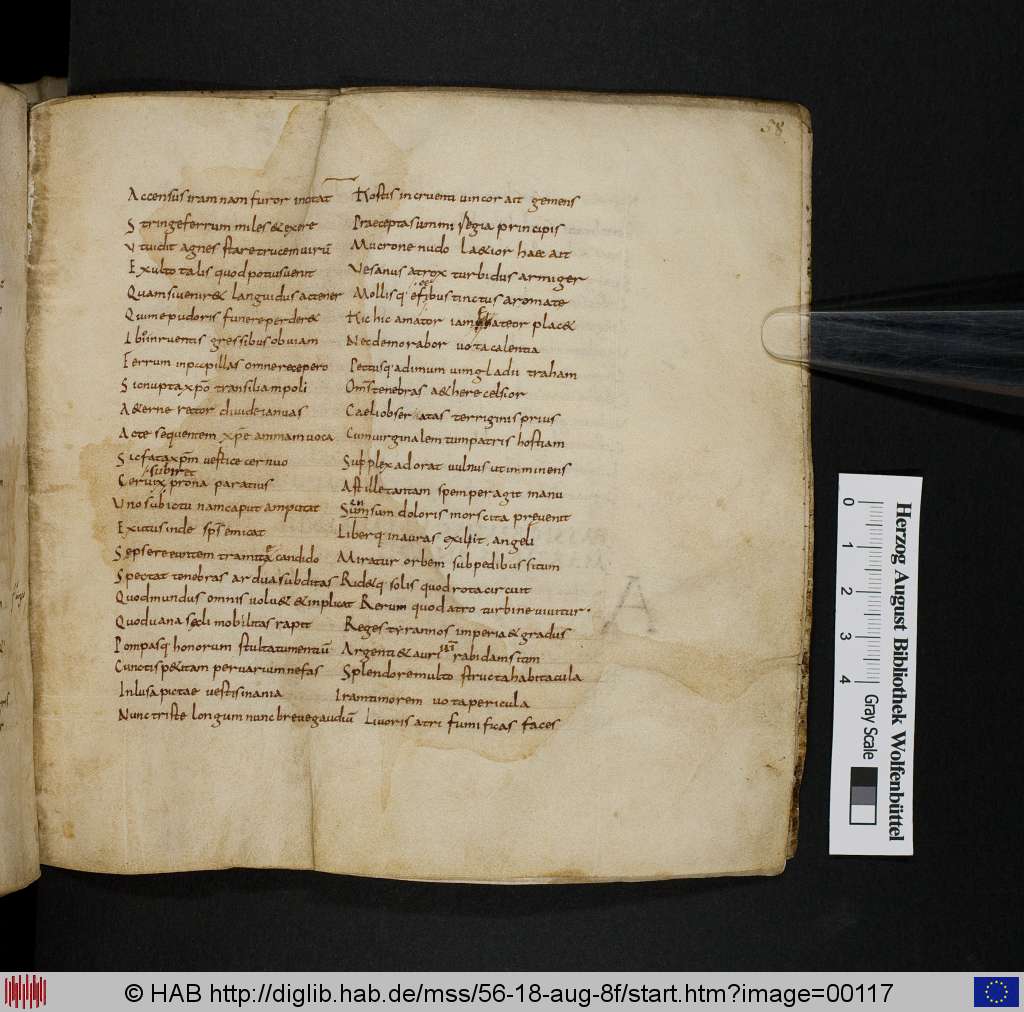 Accensus iram nam furor incitat Hostis incruenti uincor ait gemens
Stringe ferrum miles & exere Praecepta summi regia principis
Vt uidit agnes stare trucem uirū Mucrone nudo la&ior haec ait
Exulto talis quod potius uenit Vesanus atrox turbidus armiger
Quam si uenir& languidus ac tener Mollisq; efibus tinctus aromate
Qui me pudoris funere perder& Hic hic amator iam fateor plac&
Ibo inruentis gressibus obuiam Nec demorabor uota calentia
Ferrum in papillas omne recepero Pectusq; ad imum uim gladii traham
Sic nupta xp̄o transiliam poli Om̄s tenebras aethere celsior
A&erne rector diuide ianuas Caeli obseratas terriginis prius
Ac te sequentem xp̄e animam uoca Cum uirginalem tum patris hostiam
Sic fata xp̄m uestice cernuo Supplex adorat uulnus ut inminens
subiret
Ceruix prona paratius Ast ille tantam spem peragit manu
Vno sub ictu nam caput amputat Sensum doloris mors cita preuenit
Exutus inde sp̄s emicat Liberq; in auras exiluit angeli
Sepsere euntem tramite candido Miratur orbem sub pedibus situm
Spectat tenebras ardua subditas Rid&q; solis quod rota circuit
Quod mundus omnis uolu& & inplicat Rerum quod atro turbine uiuitur
Quod uana secli mobilitas rapit Reges tyrannos imperia & gradus
Pompasq; honorum stulta tumentiū Argenti & auri uim rabida sitim
Cunctis petitam per uarium nefas Splendore multo structa habitacula
Inlusa pictae uestis inania Iram timorem uota pericula
Nunc triste longum nunc breue gaudiū Liuoris atri fumificas faces
58
A
0 1 2 3 4
Gray Scale
Herzog August Bibliothek Wolfenbüttel
© HAB http://diglib.hab.de/mss/56-18-aug-8f/start.htm?image=00117